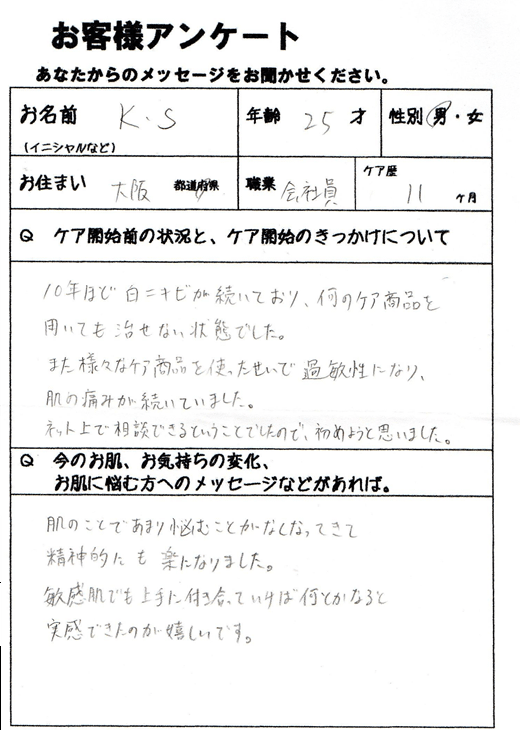 お客様アンケート
あなたからのメッセージをお聞かせください。
お名前 K.S 年齢 25 才 性別 男・女
(イニシャルなど)
お住まい 大阪 都道府県 職業 会社員 ケア歴 11 ヶ月
Q ケア開始前の状況と、ケア開始のきっかけについて
10年ほど白ニキビが続いており、何のケア商品を
用いても治せない状態でした。
また様々なケア商品を使ったせいで過敏性になり、
肌の痛みが続いていました。
ネット上で相談できるということでしたので、初めようと思いました。
Q 今のお肌、お気持ちの変化、
お肌に悩む方へのメッセージなどがあれば。
肌のことであまり悩むことがなくなってきて
精神的にも楽になりました。
敏感肌でも上手に付き合っていけば何とかなると
実感できたのが嬉しいです。